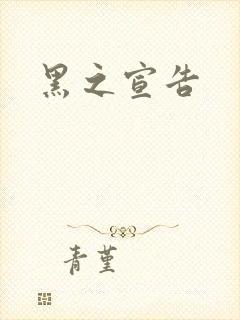 黑之宣告
青堇